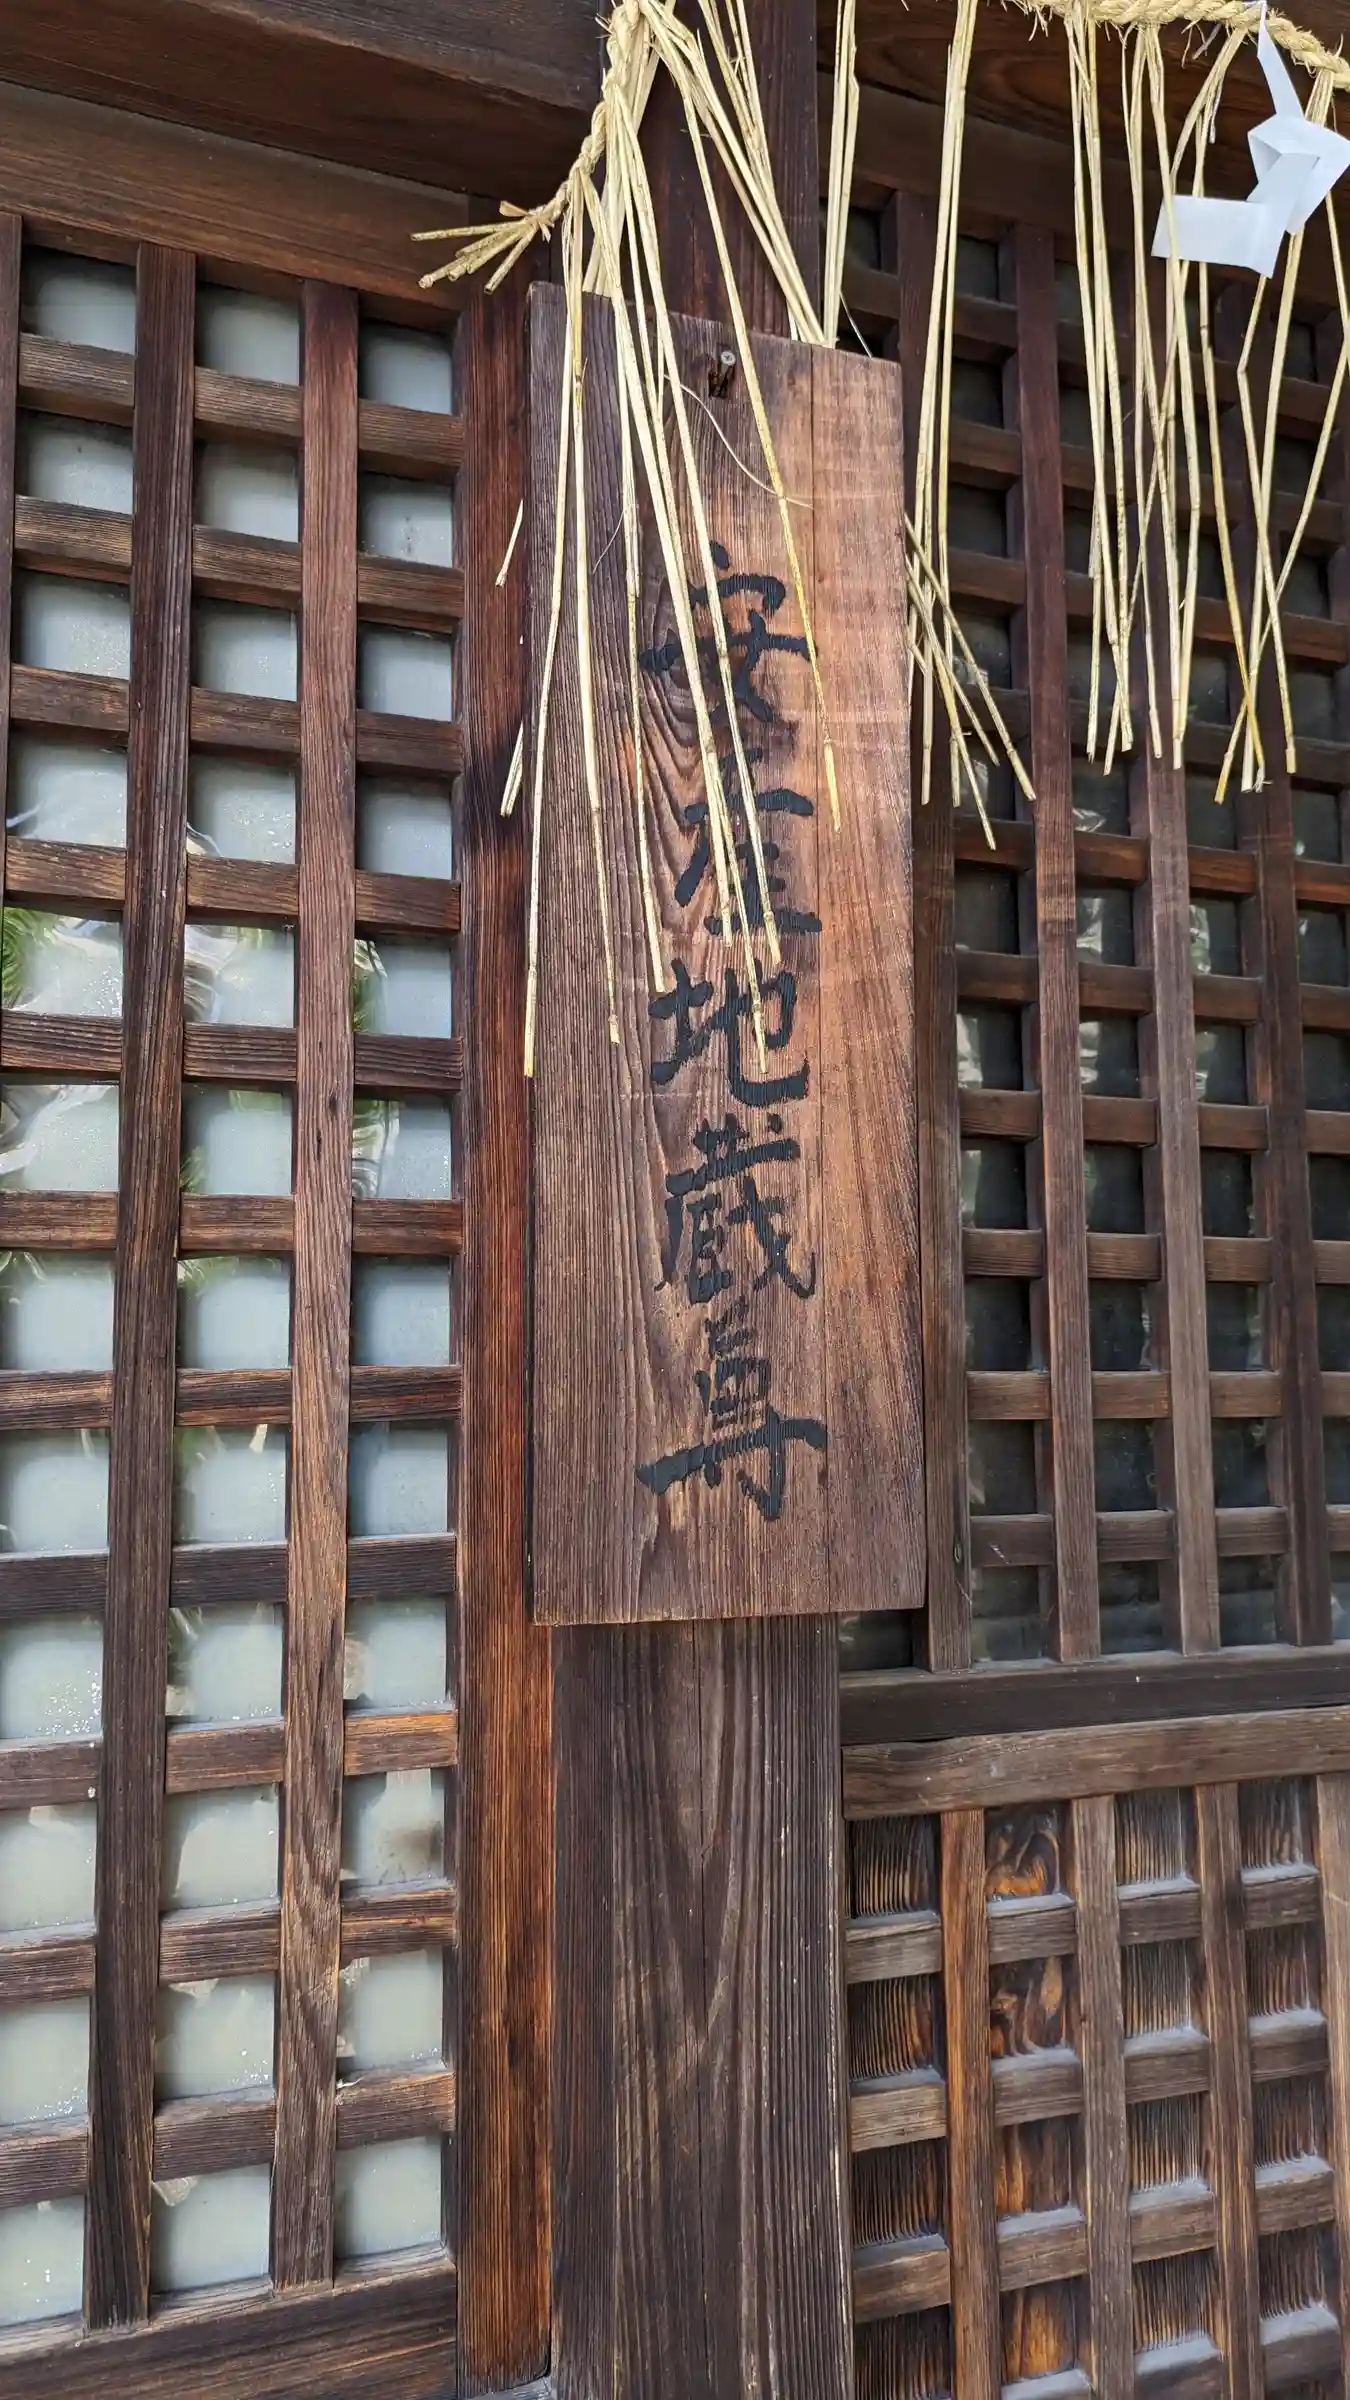 安産地蔵尊